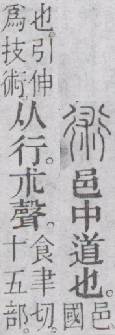 術邑中道也。邑
國
也。引伸
爲技術。
从行。朮聲。
食聿切。
十五部。